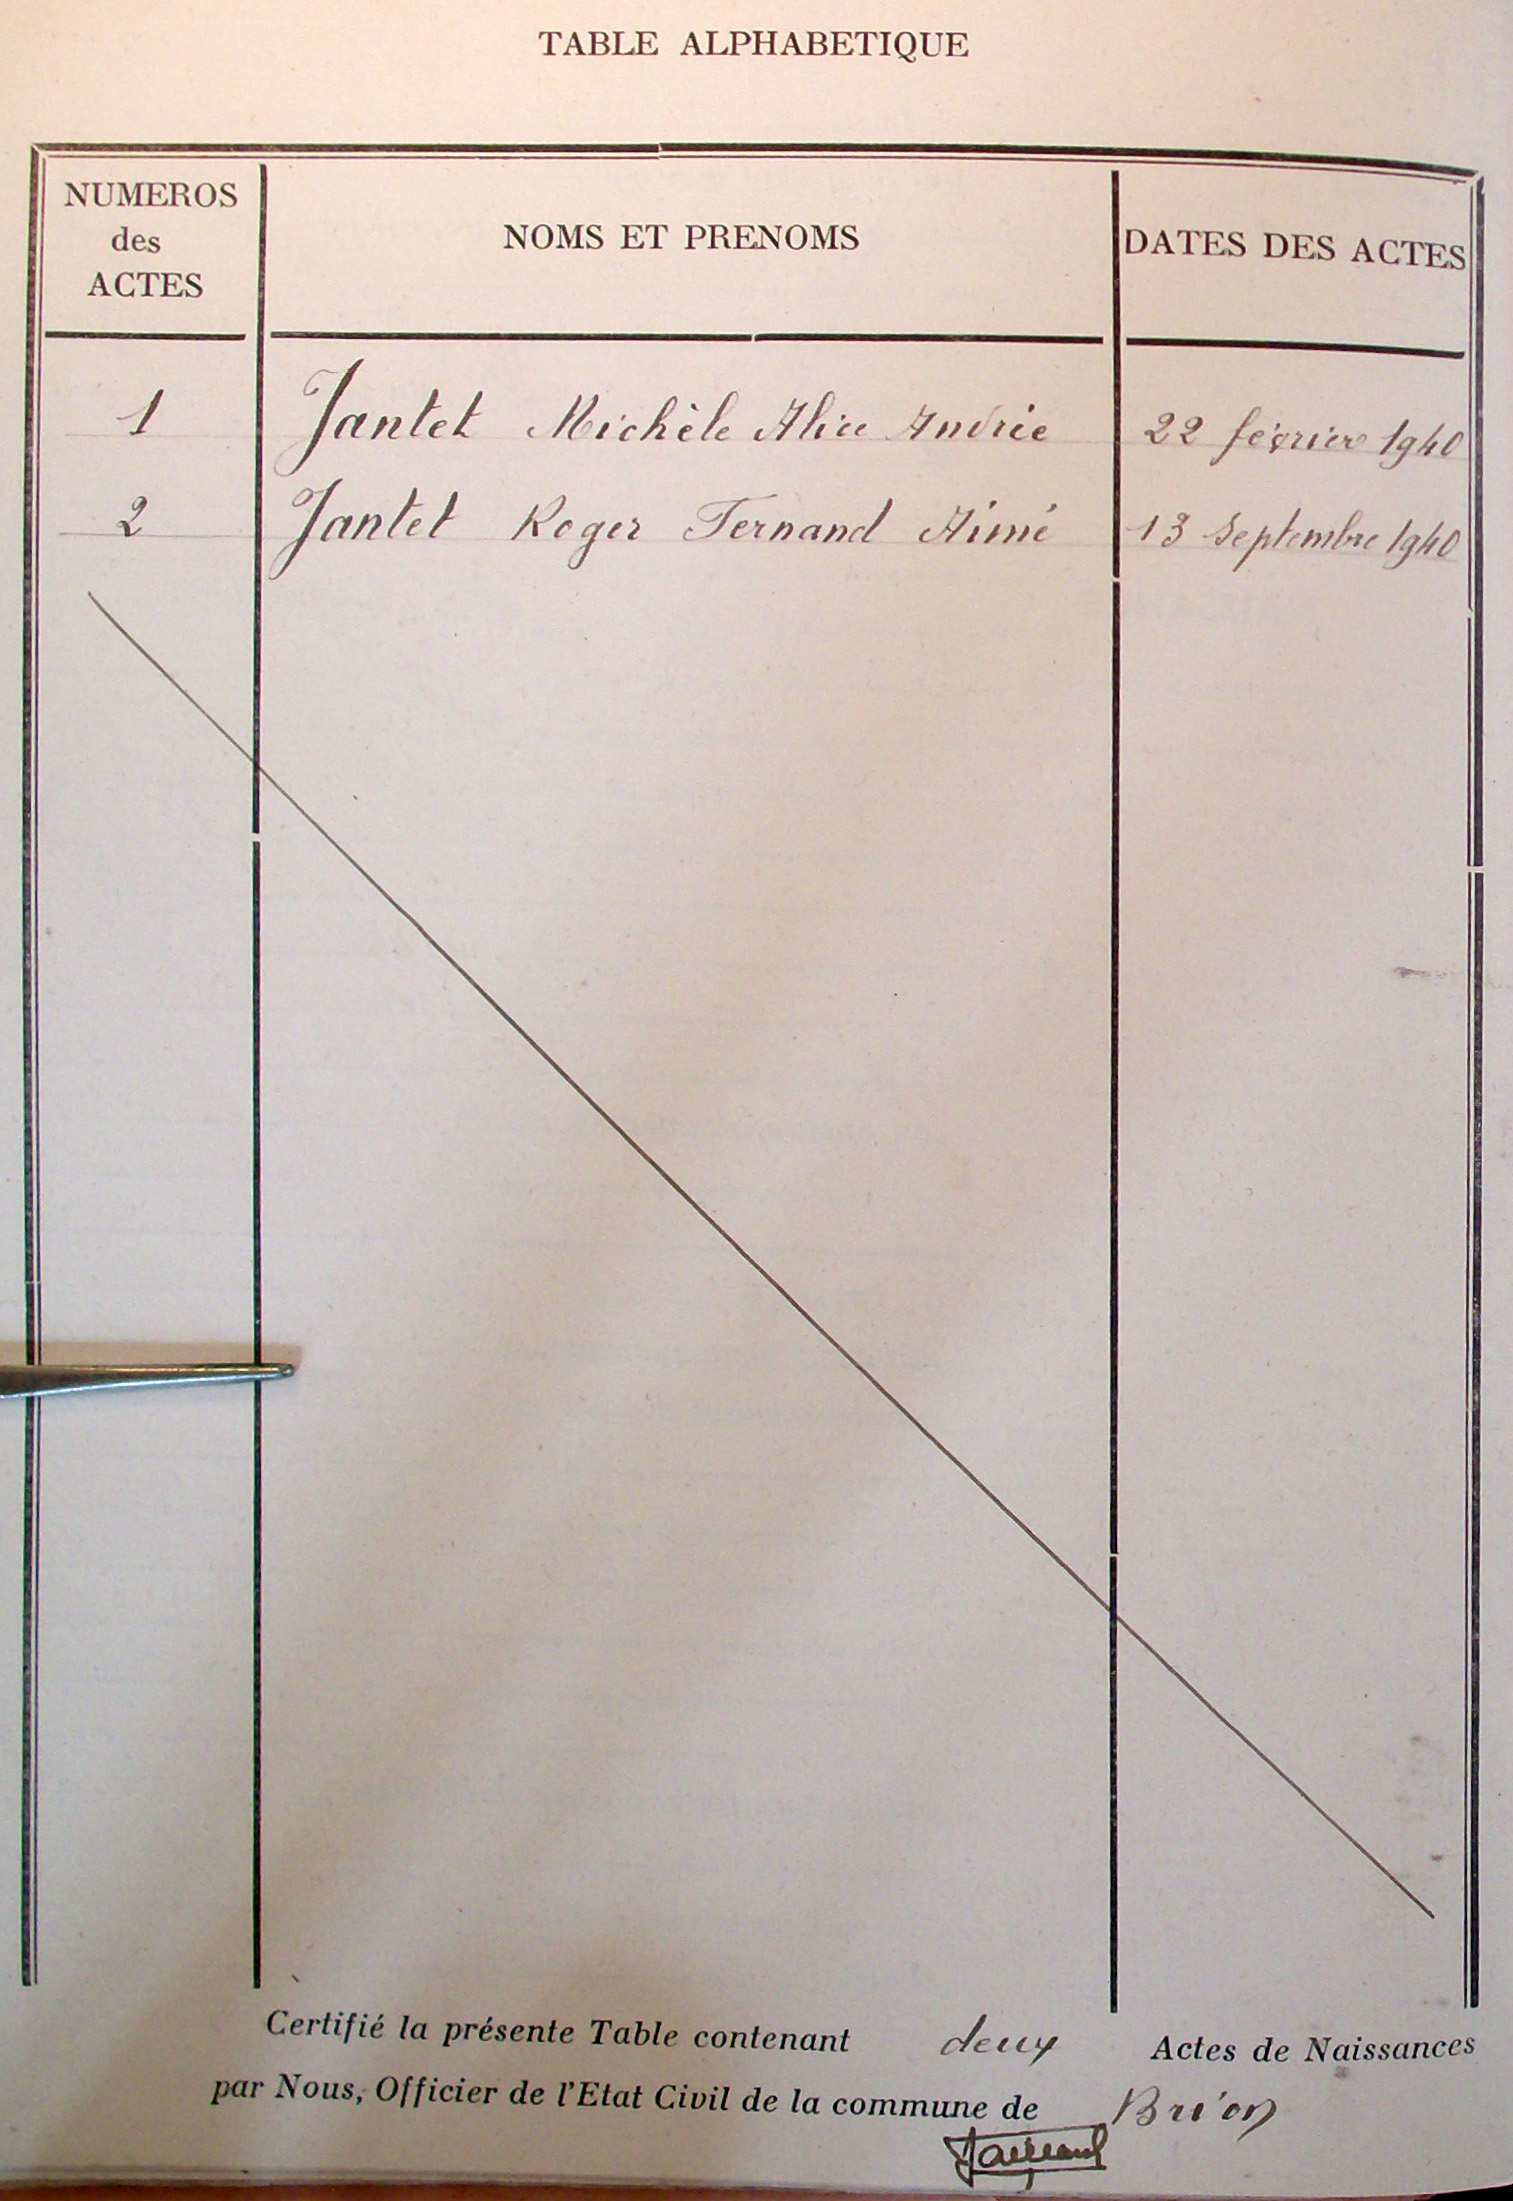 TABLE ALPHABETIQUE
NUMEROS
des
ACTES
NOMS ET PRENOMS
DATES DES ACTES
1 Jantet Michèle Alice Andrée 22 février 1940
2 Jantet Roger Fernand Aimé 13 Septembre 1940
Certifié la présente Table contenant deux Actes de Naissances
par Nous, Officier de l'Etat Civil de la commune de Brion